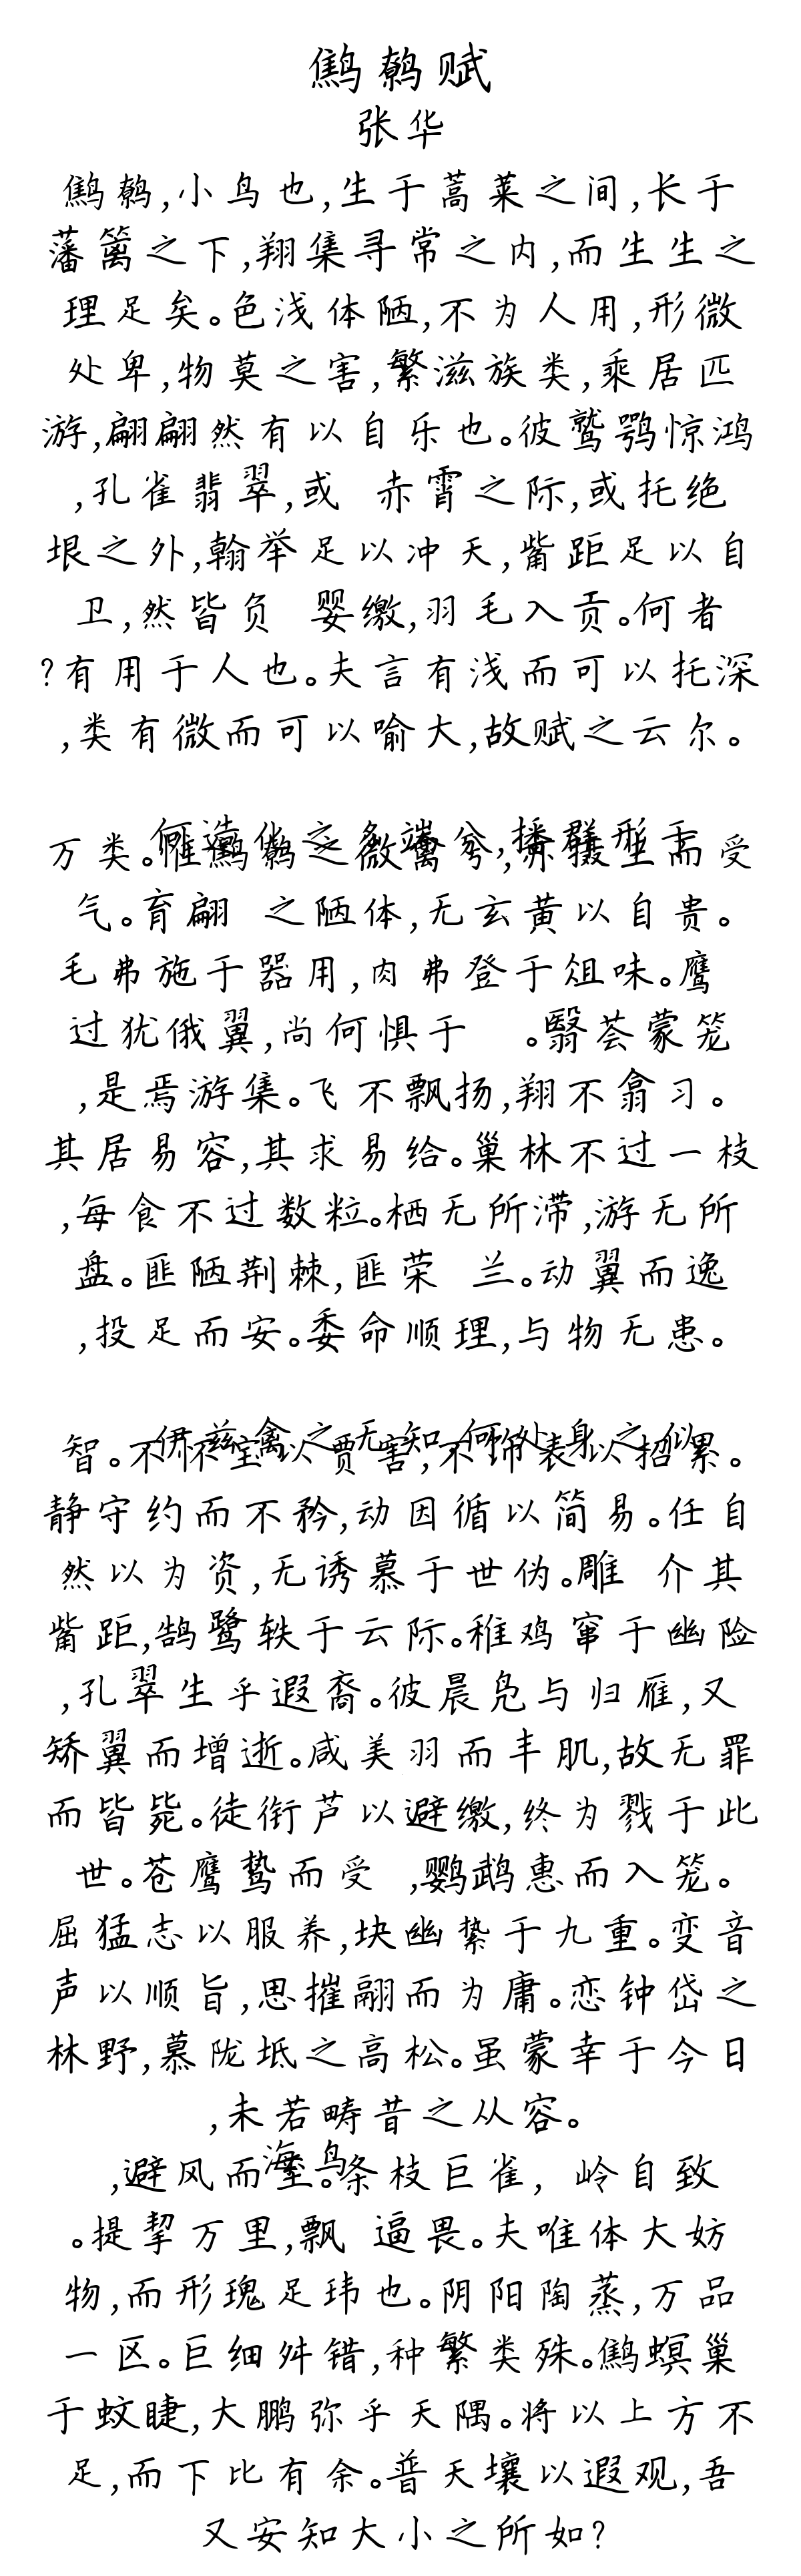 鹪鹩赋
张华
鹪鹩,小鸟也,生于蒿莱之间,长于
藩篱之下,翔集寻常之内,而生生之
理足矣。色浅体陋,不为人用,形微
处卑,物莫之害,繁滋族类,乘居匹
游,翩翩然有以自乐也。彼鹫鹗惊鸿
,孔雀翡翠,或 赤霄之际,或托绝
垠之外,翰举足以冲天,觜距足以自
卫,然皆负 婴缴,羽毛入贡。何者
?有用于人也。夫言有浅而可以托深
,类有微而可以喻大,故赋之云尔。
何造化之多端兮,播群形于
万类。惟鹪鹩之微禽兮,亦摄生而受
气。育翩 之陋体,无玄黄以自贵。
毛弗施于器用,肉弗登于俎味。鹰
过犹俄翼,尚何惧于 。翳荟蒙笼
,是焉游集。飞不飘扬,翔不翕习。
其居易容,其求易给。巢林不过一枝
,每食不过数粒。栖无所滞,游无所
盘。匪陋荆棘,匪荣 兰。动翼而逸
,投足而安。委命顺理,与物无患。
伊兹禽之无知,何处身之似
智。不怀宝以贾害,不饰表以招累。
静守约而不矜,动因循以简易。任自
然以为资,无诱慕于世伪。雕 介其
觜距,鹄鹭轶于云际。稚鸡窜于幽险
,孔翠生乎遐裔。彼晨凫与归雁,又
矫翼而增逝。咸美羽而丰肌,故无罪
而皆毙。徒衔芦以避缴,终为戮于此
世。苍鹰鸷而受 ,鹦鹉惠而入笼。
屈猛志以服养,块幽絷于九重。变音
声以顺旨,思摧翮而为庸。恋钟岱之
林野,慕陇坻之高松。虽蒙幸于今日
,未若畴昔之从容。
海鸟
,避风而至。条枝巨雀, 岭自致
。提挈万里,飘 逼畏。夫唯体大妨
物,而形瑰足玮也。阴阳陶蒸,万品
一区。巨细舛错,种繁类殊。鹪螟巢
于蚊睫,大鹏弥乎天隅。将以上方不
足,而下比有余。普天壤以遐观,吾
又安知大小之所如?